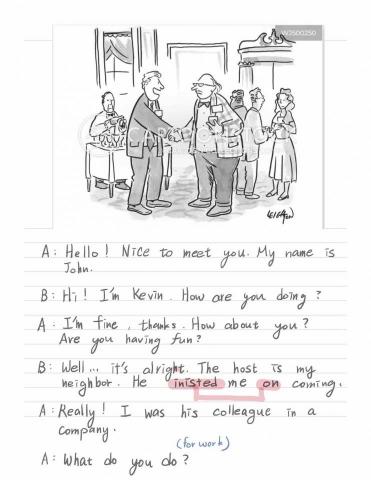 W2500250
CARTOONSTOCK
LEIGHTON
A: Hello! Nice to meet you. My name is
John.
B: Hi! I'm Kevin. How are you doing?
A: I'm fine, thanks. How about you?
Are you having fun?
B: Well... it's alright. The host is my
neighbor. He inisted me on coming.
A: Really! I was his colleague in a
company.
(for work)
A: What do you do?